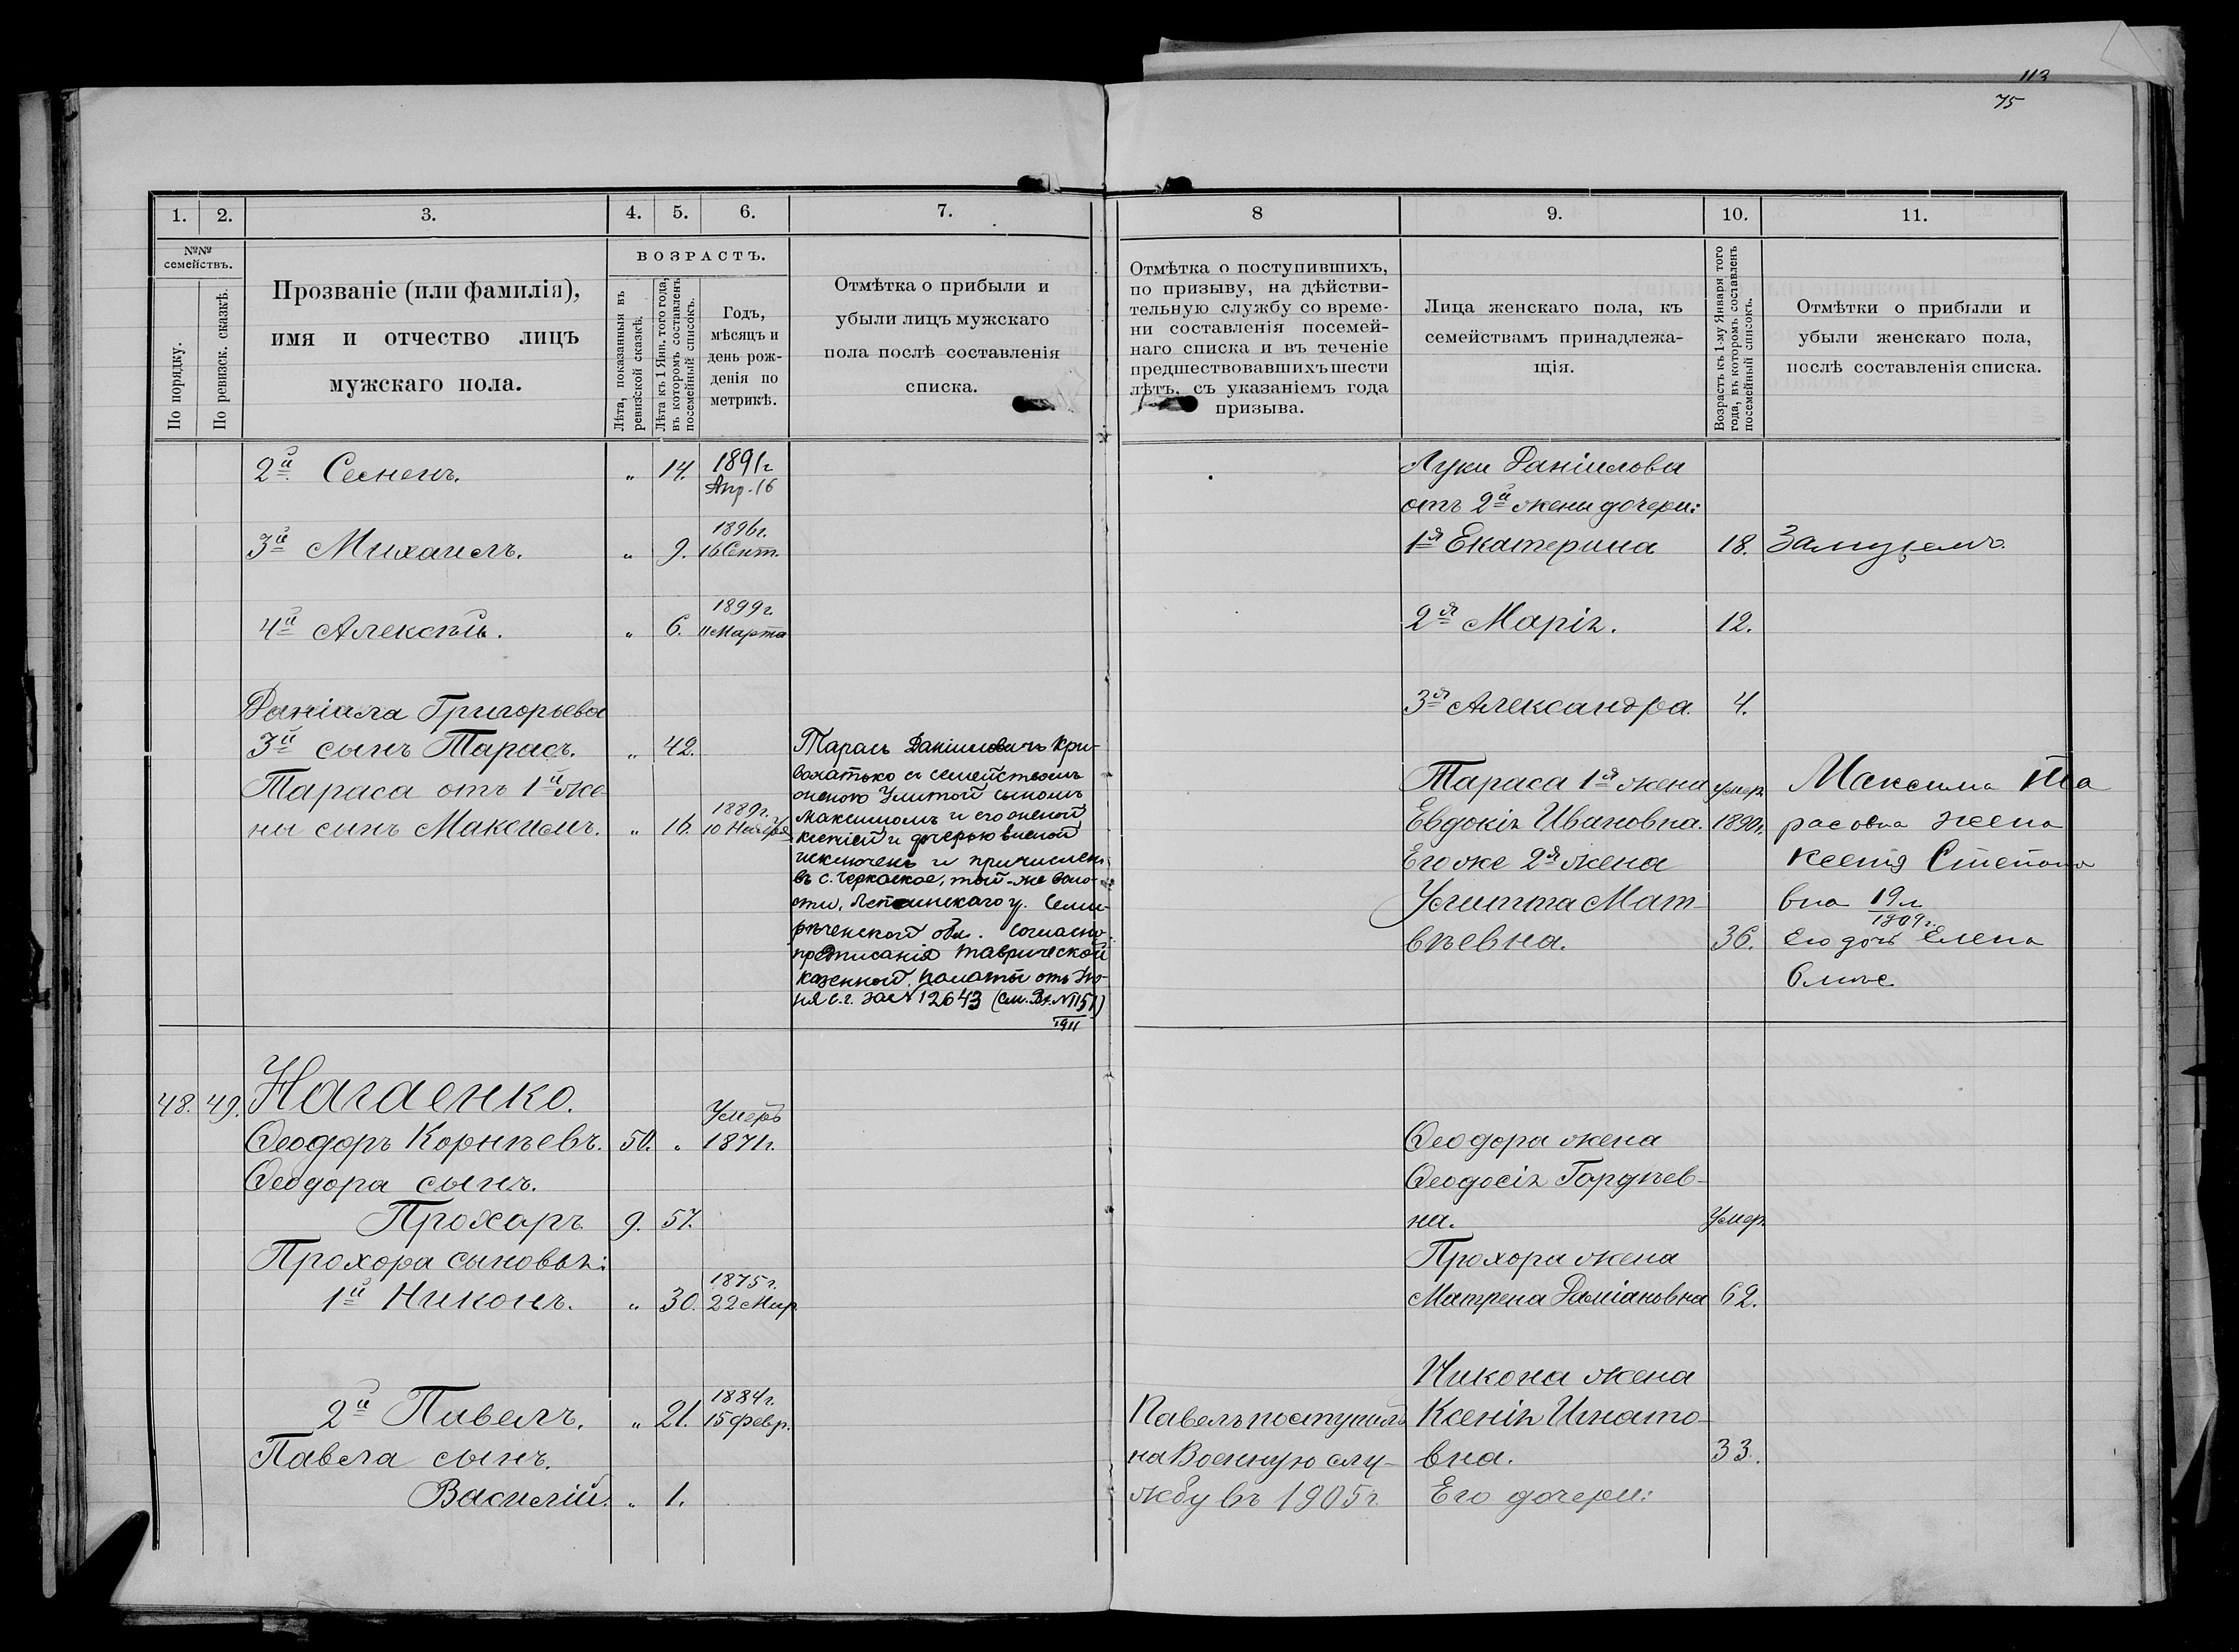 113
75
1. 2. 3. 4. 5. 6. 7.
№№ семействъ.
По порядку.
По ревизск. сказкѣ.
Прозваніе (или фамилія),
имя и отчество лицъ
мужскаго пола.
ВОЗРАСТЪ.
Лѣта, показанныя въ
ревизской сказкѣ.
Лѣта къ 1 Янв. того года,
въ которомъ составленъ
посемейный списокъ.
Годъ,
мѣсяцъ и
день рож-
денія по
метрикѣ.
Отмѣтка о прибыли и
убыли лицъ мужскаго
пола послѣ составленія
списка.
2й Семенъ. " 14. 1891г
Апр. 16
1896г.
3й Михаилъ. " 9. 16 Сент.
1899г.
4й Алексѣй. " 6. 11 Марта
Даніила Григорьева
3й сынъ Тарасъ. " 42.
Тараса отъ 1й же
ны сынъ Максимъ. " 16. 1889г.
10 Ноября
Тарасъ Даніиловичъ Кри-
вохатько съ семействомъ
женою Улитой сыномъ
Максимомъ и его женой
Ксеніей и дочерью Еленой
исключенъ и причисленъ
въ с. Черкаское, той-же воло-
сти, Лепсинскаго у. Семи-
рѣченской обл. Согласно
предписанія Таврической
Казенной Палаты отъ Iю-
ня с.г. за № 12643 (см. Вх. № 1151)
1911
48. 49. Нагаенко.
Умеръ
Ѳеодоръ Корнѣевъ. 50. " 1871г.
Ѳеодора сынъ.
Прохоръ 9. 57.
Прохора сыновья:
1875г.
1й Никонъ. " 30. 22 Мар.
1884г.
2й Павелъ. " 21. 15 Февр.
Павла сынъ.
Василій. " 1.
8 9. 10. 11.
Отмѣтка о поступившихъ,
по призыву, на дѣйстви-
тельную службу со време-
ни составленія посемей-
наго списка и въ теченіе
предшествовавшихъ шести
лѣтъ, съ указаніемъ года
призыва.
Лица женскаго пола, къ
семействамъ принадлежа-
щія.
Возрастъ къ 1-му Января того
года, въ которомъ составленъ
посемейный списокъ.
Отмѣтки о прибыли и
убыли женскаго пола,
послѣ составленія списка.
Луки Даніилова
отъ 2й жены дочери:
1я Екатерина 18. Замужемъ.
2я Марія. 12.
3я Александра. 4.
Тараса 1я жена умер.
Евдокія Ивановна. 1890г.
Его же 2я жена
Улитта Мат-
вѣевна. 36.
Максима Та
расова жена
Ксенія Степано
вна 19 л
1909г.
Его дочь Елена
Ѳеодора жена
Ѳеодосія Гордѣев-
на. Умер.
Прохора жена
Матрена Даміановна 62.
Никона жена
Ксенія Игнато-
вна. 33.
Его дочери:
Павелъ поступилъ
на Военную слу-
жбу въ 1905г.